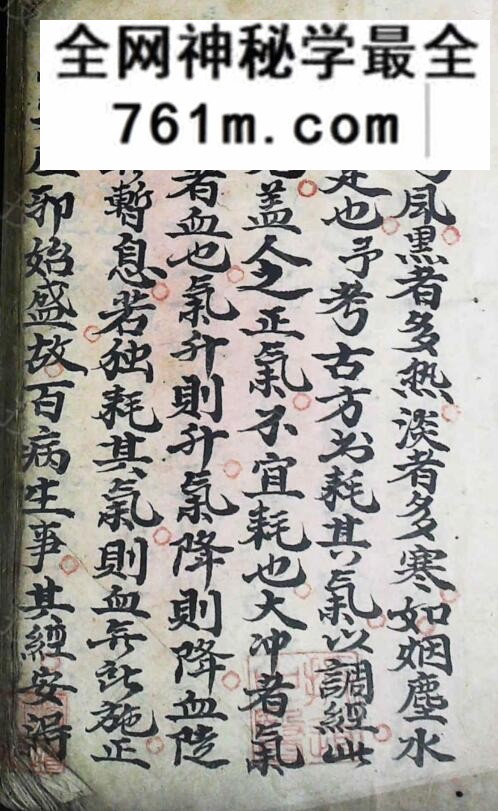 全网神秘学最全
761m.com
风黑者多热淡者多寒如烟塵水
也予考古方为耗其气以調經此
盖人之正氣不宜耗也大冲者氣
者血也氣升則升氣降則降血陡
暫息若独耗其氣則血无所施正
邪始盛故百病生事其經安得